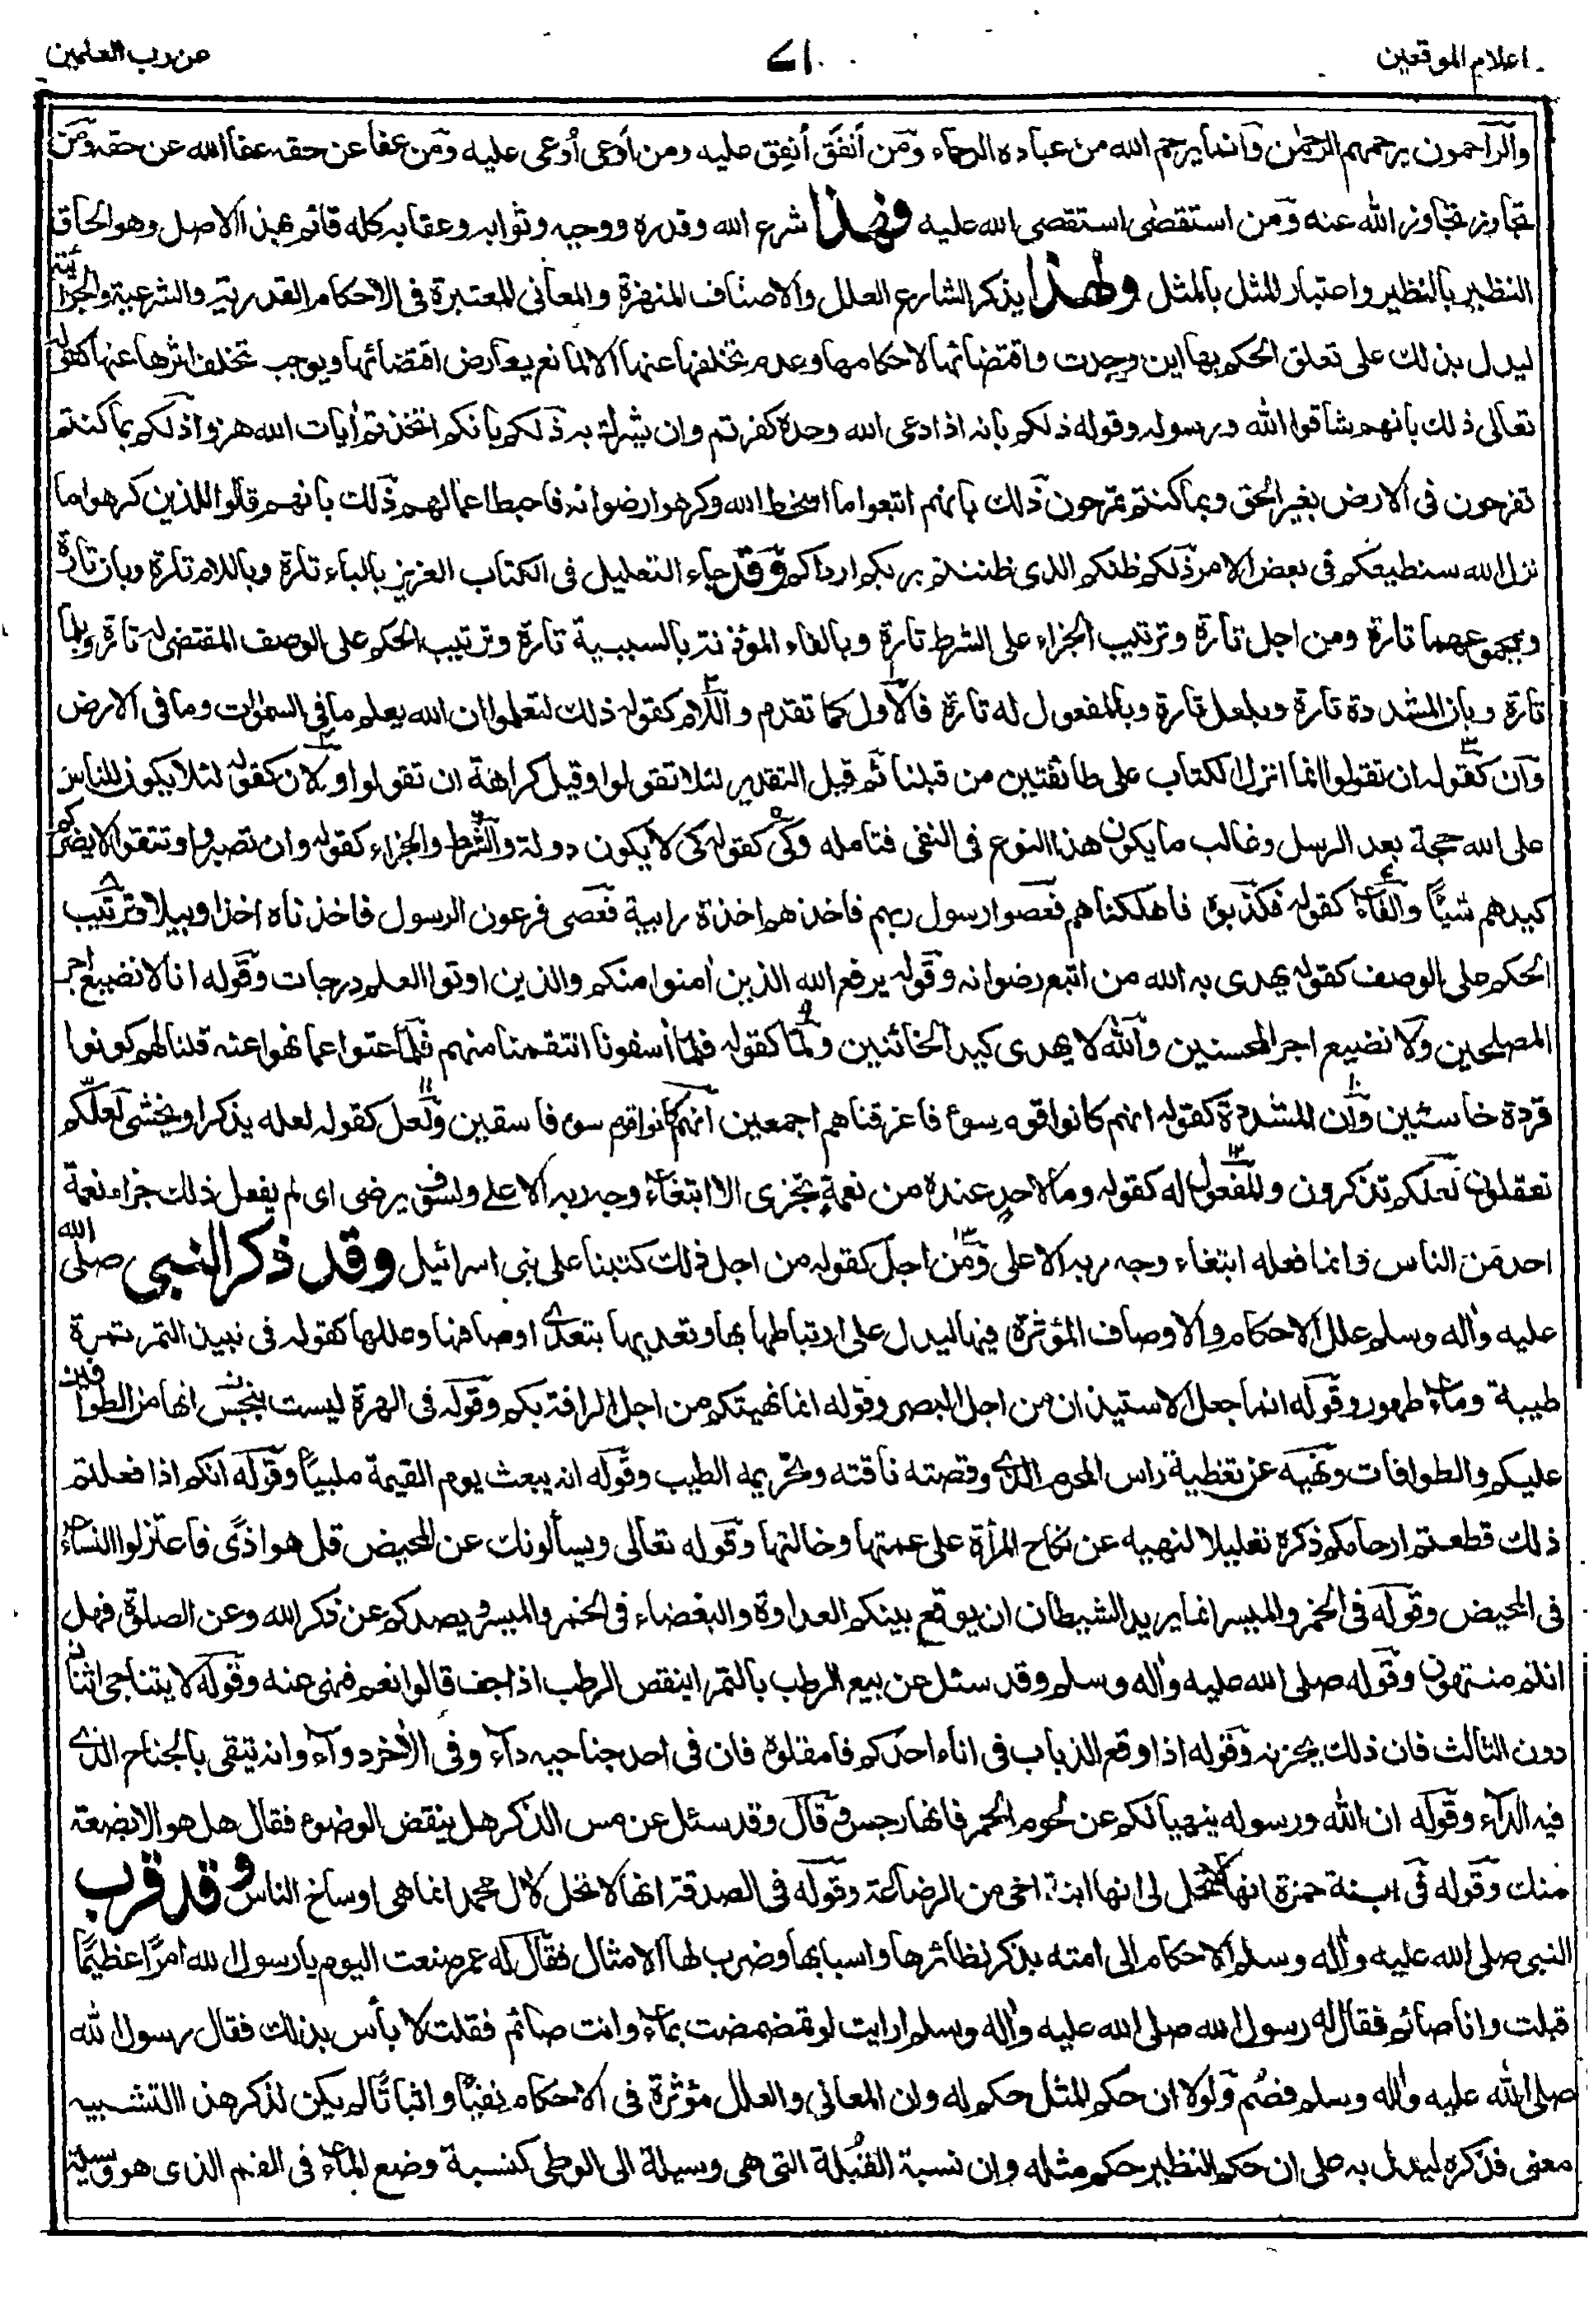 اعلام الموقعين
٧١
عن رب العلمين
والراحمون يرحمهم الرحمٰن وانما يرحم الله من عباده الرحماء ومن أنفق أنفق عليه ومن أوعى أوعى عليه ومن عفا عن حقه عفا الله عن حقه ومن
تجاوز تجاوز الله عنه ومن استقصٰى استقصى الله عليه فهذا شرع الله وقدره ووحيه وثوابه وعقابه كله قائم بهذا الاصل وهو الحاق
النظير بالنظير واعتبار المثل بالمثل ولهذا يذكر الشارع العلل والاوصاف المؤثرة والمعانى المعتبرة فى الاحكام القدرية والشرعية والجزائية
ليدل بذلك على تعلق الحكم بها اين وجدت واقتضائها لاحكامها وعدم تخلفها عنها الا لمانع يعارض اقتضائها ويوجب تخلف اثرها عنها كقوله
تعالى ذلك بانهم شاقوا الله ورسوله وقوله ذلكم بانه اذا دعى الله وحده كفرتم وان يشرك به ذلكم بانكم اتخذتم أيات الله هزوا ذلكم بما كنتم
تفرحون فى الارض بغير الحق وبما كنتم تمرحون ذلك بانهم اتبعوا ما اسخط الله وكرهوا رضوانه فاحبط اعمالهم ذلك بانهم قالوا للذين كرهوا ما
نزل الله سنطيعكم فى بعض الامر ذلكم ظنكم الذى ظننتم بربكم ارداكم وقد جاء التعليل فى الكتاب العزيز بالباء تارة وباللام تارة وبان تارة
وبمجموعهما تارة ومن اجل تارة وترتيب الجزاء على الشرط تارة وبالفاء المؤذنة بالسببية تارة وترتيب الحكم على الوصف المقتضى له تارة وبلما
تارة وبان المشددة تارة وبلعل تارة وبالمفعول له تارة فالاول كما تقدم واللام كقوله ذلك لتعلموا ان الله يعلم ما فى السمٰوات وما فى الارض
وان كقوله ان تقولوا انما انزل الكتاب على طائفتين من قبلنا ثم قيل التقدير لئلا تقولوا وقيل كراهة ان تقولوا ولان كقوله لئلا يكون للناس
على الله حجة بعد الرسل وغالب ما يكون هذا النوع فى النفى فتامله وكى كقوله كى لا يكون دولة والشرط والجزاء كقوله وان تصبروا وتتقوا لا يضركم
كيدهم شيئًا والفاء كقوله فكذبوه فاهلكناهم فعصوا رسول ربهم فاخذهم اخذة رابية فعصى فرعون الرسول فاخذناه اخذا وبيلا وترتيب
الحكم على الوصف كقوله يهدى به الله من اتبع رضوانه وقوله يرفع الله الذين اٰمنوا منكم والذين اوتوا العلم درجات وقوله انا لا نضيع اجر
المصلحين ولا نضيع اجر المحسنين والله لا يهدى كيد الخائنين ولما كقوله فلما أسفونا انتقمنا منهم فلما عتوا عما نهوا عنه قلنا لهم كونوا
قردة خاسئين وان المشددة كقوله انهم كانوا قوم سوء فاغرقناهم اجمعين انهم كانوا قوم سوء فاسقين ولعل كقوله لعله يذكر او يخشى لعلكم
تعقلون لعلكم تذكرون والمفعول له كقوله وما لاحدٍ عنده من نعمةٍ تجزى الا ابتغاء وجه ربه الاعلى ولسوف يرضى اى لم يفعل ذلك جزاء نعمة
احد من الناس وانما فعله ابتغاء وجه ربه الاعلى ومن اجل كقوله من اجل ذلك كتبنا على بنى اسرائيل وقد ذكر النبى صلى الله
عليه واٰله وسلم علل الاحكام والاوصاف المؤثرة فيها ليدل على ارتباطها بها وتعديها بتعدى اوصافها وعللها كقوله فى نبيذ التمر تمرة
طيبة وماء طهور وقوله انما جعل الاستيذان من اجل البصر وقوله انما نهيتكم من اجل الرافة بكم وقوله فى الهرة ليست بنجس انها من الطوافين
عليكم والطوافات ونهيه عن تغطية راس المحرم الذى وقصته ناقته وتحريمه الطيب وقوله انه يبعث يوم القيمة ملبيًا وقوله انكم اذا فعلتم
ذلك قطعتم ارحامكم ذكره تعليلا لنهيه عن نكاح المرأة على عمتها وخالتها وقوله تعالى ويسألونك عن المحيض قل هو اذًى فاعتزلوا النساء
فى المحيض وقوله فى الخمر والميسر انما يريد الشيطان ان يوقع بينكم العداوة والبغضاء فى الخمر والميسر ويصدكم عن ذكر الله وعن الصلوة فهل
انتم منتهون وقوله صلى الله عليه واٰله وسلم وقد سئل عن بيع الرطب بالتمر اينقص الرطب اذا جف قالوا نعم فنهى عنه وقوله لا يتناجى اثنان
دون الثالث فان ذلك يحزنه وقوله اذا وقع الذباب فى اناء احدكم فامقلوه فان فى احد جناحيه داء وفى الاٰخر دواء وانه يتقى بالجناح الذى
فيه الداء وقوله ان الله ورسوله ينهيانكم عن لحوم الحمر فانها رجس وقال وقد سئل عن مس الذكر هل ينقض الوضوء فقال هل هو الا بضعة
منك وقوله فى ابنة حمزة انها لا تحل لى انها ابنة اخى من الرضاعة وقوله فى الصدقة انها لا تحل لاٰل محمد انما هى اوساخ الناس وقد قرب
النبى صلى الله عليه واٰله وسلم الاحكام الى امته بذكر نظائرها واسبابها وضرب لها الامثال فقال له عمر صنعت اليوم يا رسول الله امرًا عظيمًا
قبلت وانا صائم فقال له رسول الله صلى الله عليه واٰله وسلم ارايت لو تمضمضت بماء وانت صائم فقلت لا بأس بذلك فقال رسول الله
صلى الله عليه واٰله وسلم فصُم ولولا ان حكم المثل حكم له وان المعانى والعلل مؤثرة فى الاحكام نفيًا واثباتًا لم يكن لذكر هذا التشبيه
معنى فذكره ليدل به على ان حكم النظير حكم مثله وان نسبة القُبلة التى هى وسيلة الى الوطى كنسبة وضع الماء فى الفم الذى هو وسيلة